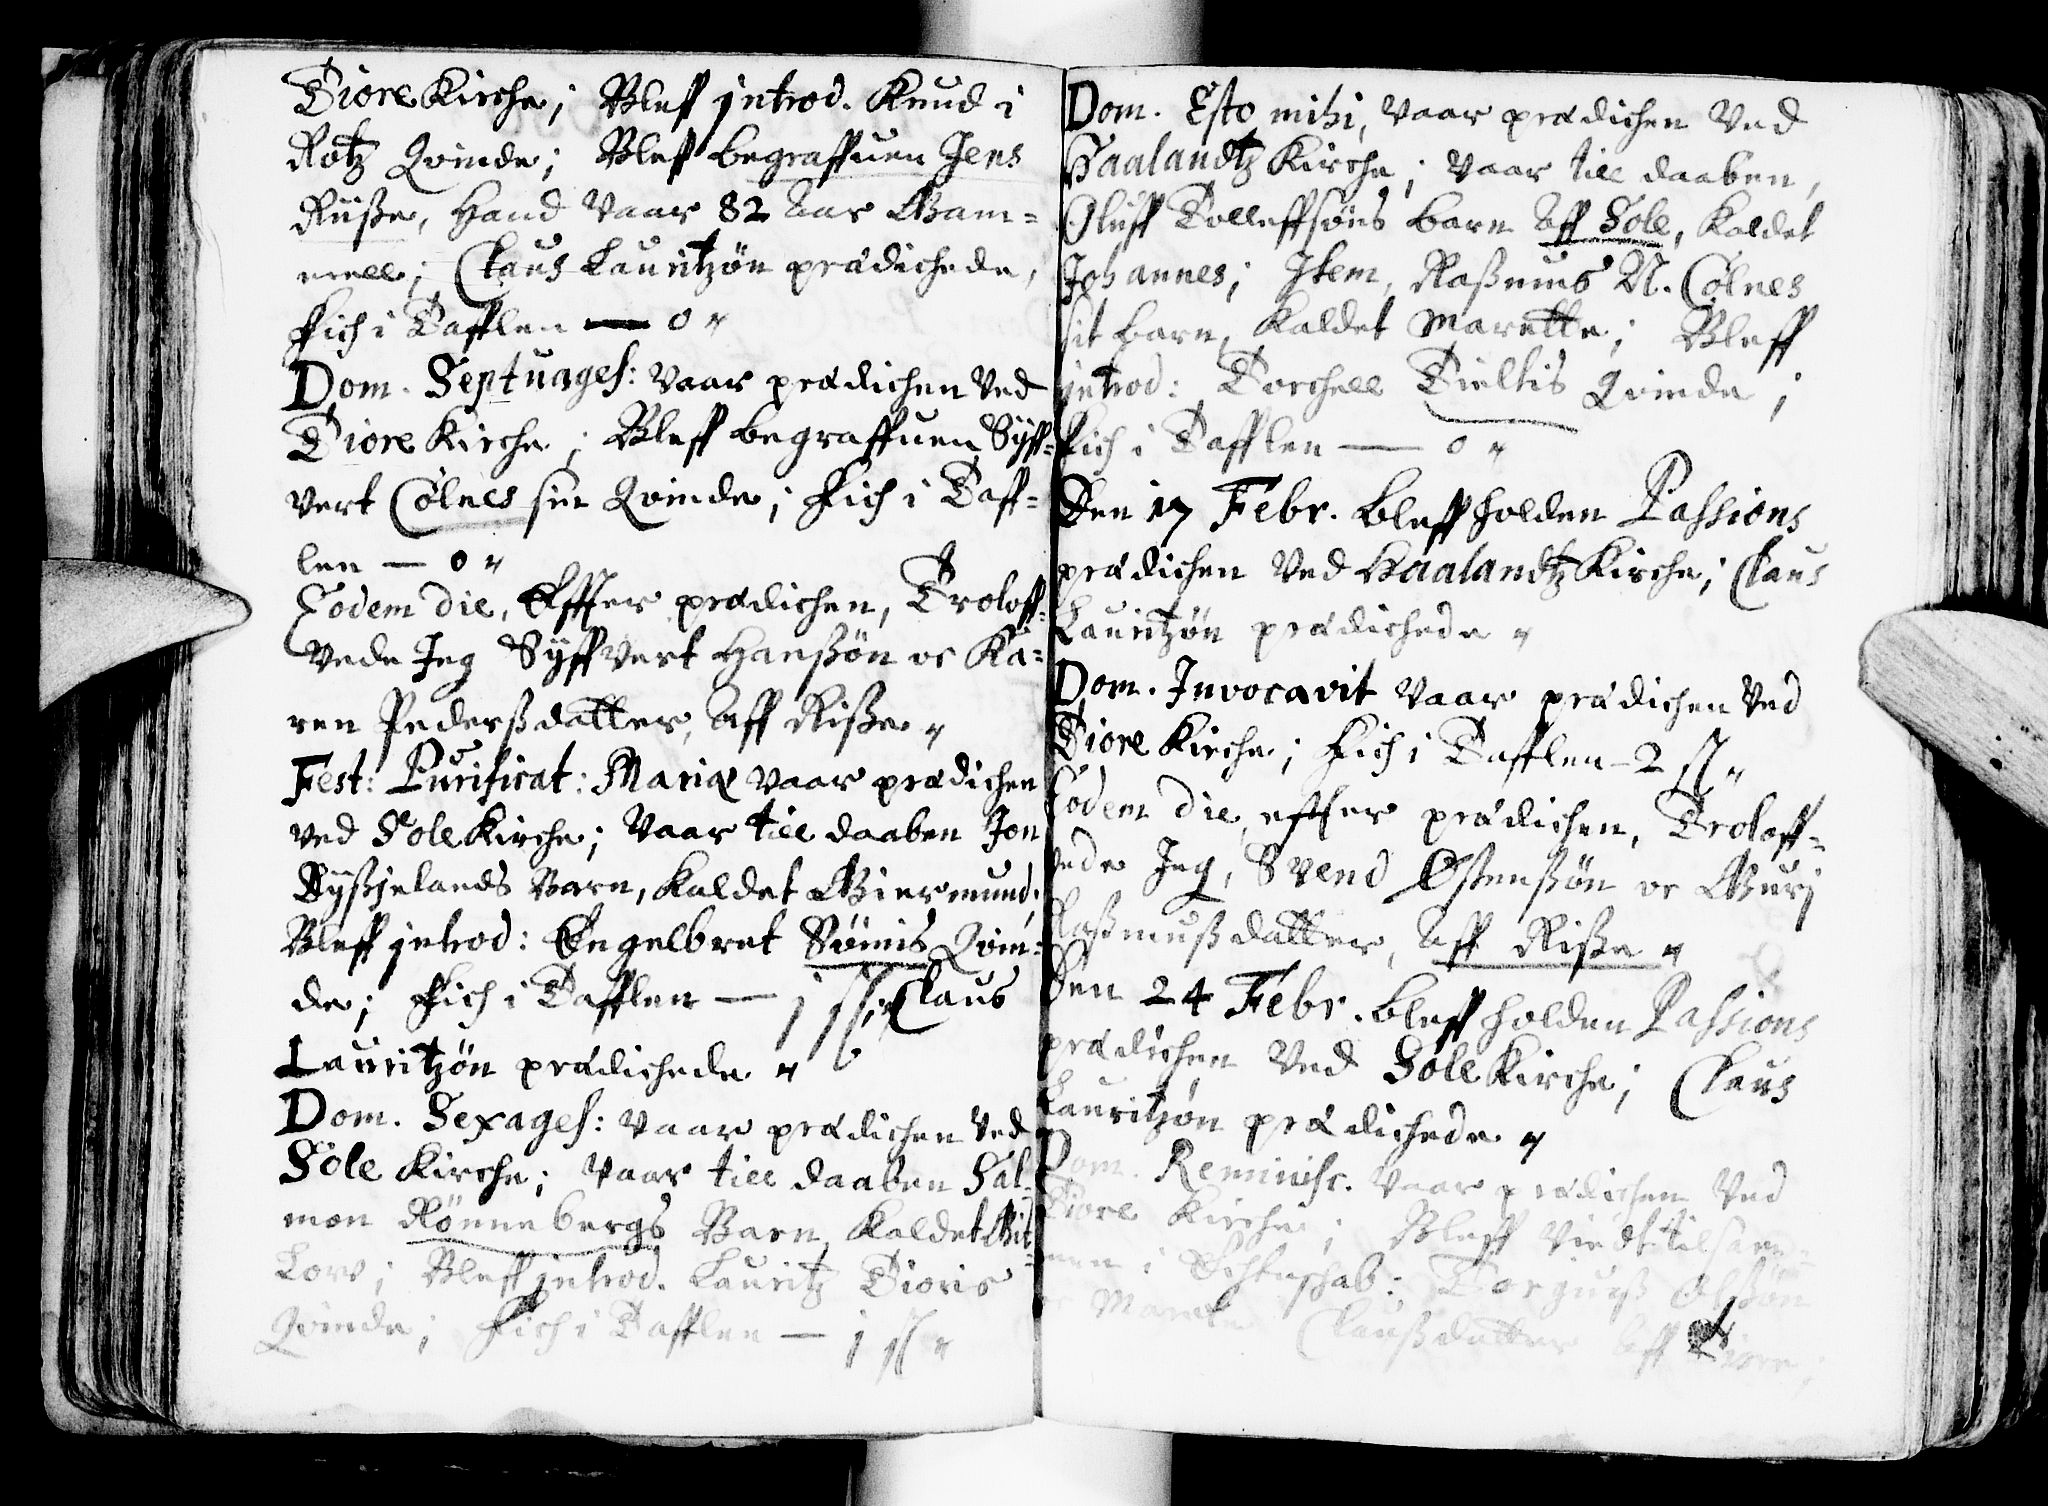 Tiore Kirche; Bleff jntrod. Knud i
Rotz Qvinde; Bleff begraffuen Jens
Russe, Hand vaar 82 Aar Gam=
mell; Claus Lauritzøn prædichede,
Fich i Tafflen — 0 "
Dom. Septuages: vaar prædichen ved
Tiore Kirche; Bleff begraffuen Syff=
vert Cølnes sin Qvinde; Fich i Taff=
len — 0 "
Eodem die, Effter prædichen, Troloff=
vede Jeg Syffvert Hanssøn oc Ka=
ren Pederssdatter, Aff Risse "
Fest: Purificat: Mariæ vaar prædichen
ved Sole Kirche; vaar till daaben Jon
Syssjelands Barn, kaldet Giermund;
Bleff jntrod: Engelbret Sømis Qvin=
de; Fich i Tafflen — j sl; Claus
Lauritzøn prædichede "
Dom. Sexages: vaar prædichen ved
Sole Kirche; vaar till daaben Sal=
mon Rønnebergs Barn, kaldet
Bleff jntrod. Lauritz Tioris
Qvinde; Fich i Tafflen — j sl "
Dom. Esto mihi, vaar prædichen ved
Haalandtz Kirche; vaar till daaben,
Oluff Tolleffsøns barn Aff Sole, kaldet
Johannes; Item, Rassmus N. Cølnes
sit barn, kaldet Marette; Bleff
jntrod: Torchell Tieltis Qvinde;
Fich i Tafflen — 0 "
Den 17 Febr. bleff holden Passions
prædichen ved Haalandtz Kirche; Claus
Lauritzøn prædichede "
Dom. Invocavit vaar prædichen ved
Tiore Kirche; Fich i Tafflen - 2 sl "
Eodem die, effter prædichen, Troloff=
vede Jeg, Svend Østenssøn oc Gurj
Rassmussdatter, Aff Risse "
Den 24 Febr. bleff holden Passions
prædichen ved Sole Kirche; Claus
Lauritzøn prædichede "
Dom. Reminisc. vaar prædichen ved
Tiore Kirche; Bleff viedt tilsam=
men i Echteskab: Torgiuss Olssøn
oc Marete Claussdatter Aff Tiore;